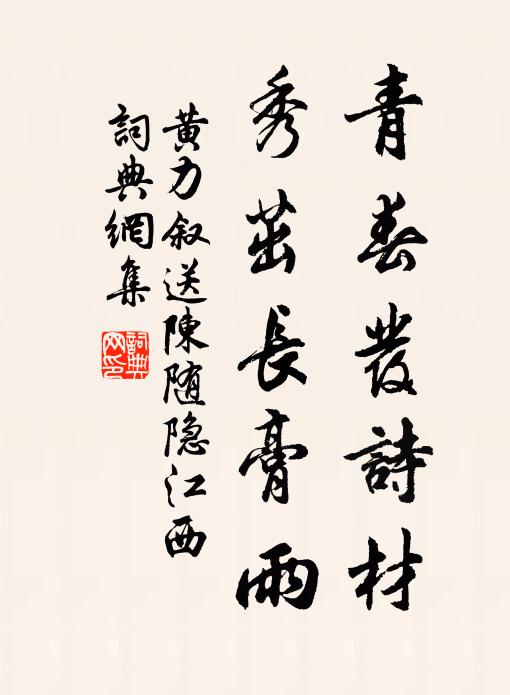 青春發詩材
秀茁長膏雨
黄力叙送陳随隐江西
詞典網集
詞典网印